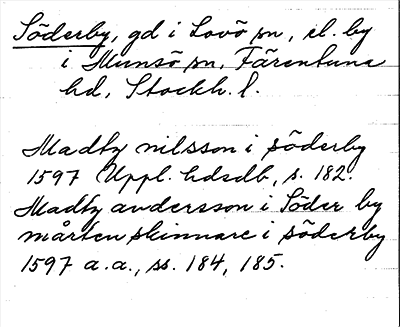 Söderby, gd i Lovö sn, el. by
i Munsö sn, Färentuna
hd, Stockh. l.
Madtz nilsson i söderby
1597 Uppl. hdsdb, s. 182.
Madtz andersson i Söder by
mårten skinnare i söderby
1597 a.a., ss. 184, 185.